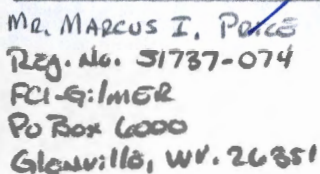 MR. MARCUS I. PRICE
Reg. No. 51737-074
FCI-GilmER
PO Box 6000
Glenville, WV. 26351